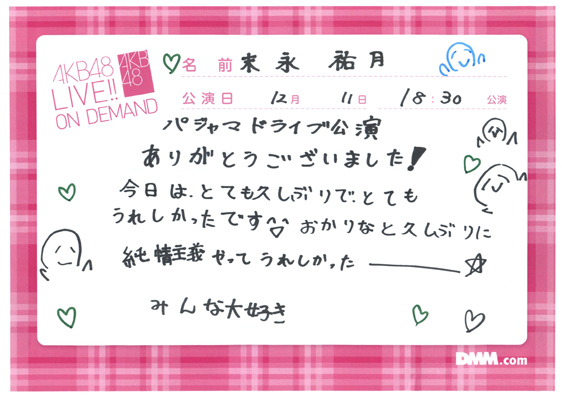 AKB48
LIVE!!
ON DEMAND
AKB
48
名 前 末永 祐月
公演日 12月 11日 18:30 公演
パジャマドライブ公演
ありがとうございました!
今日は、とても久しぶりで、とても
うれしかったです おかりなと久しぶりに
純情主義やってうれしかった――☆
みんな大好き
DMM.com